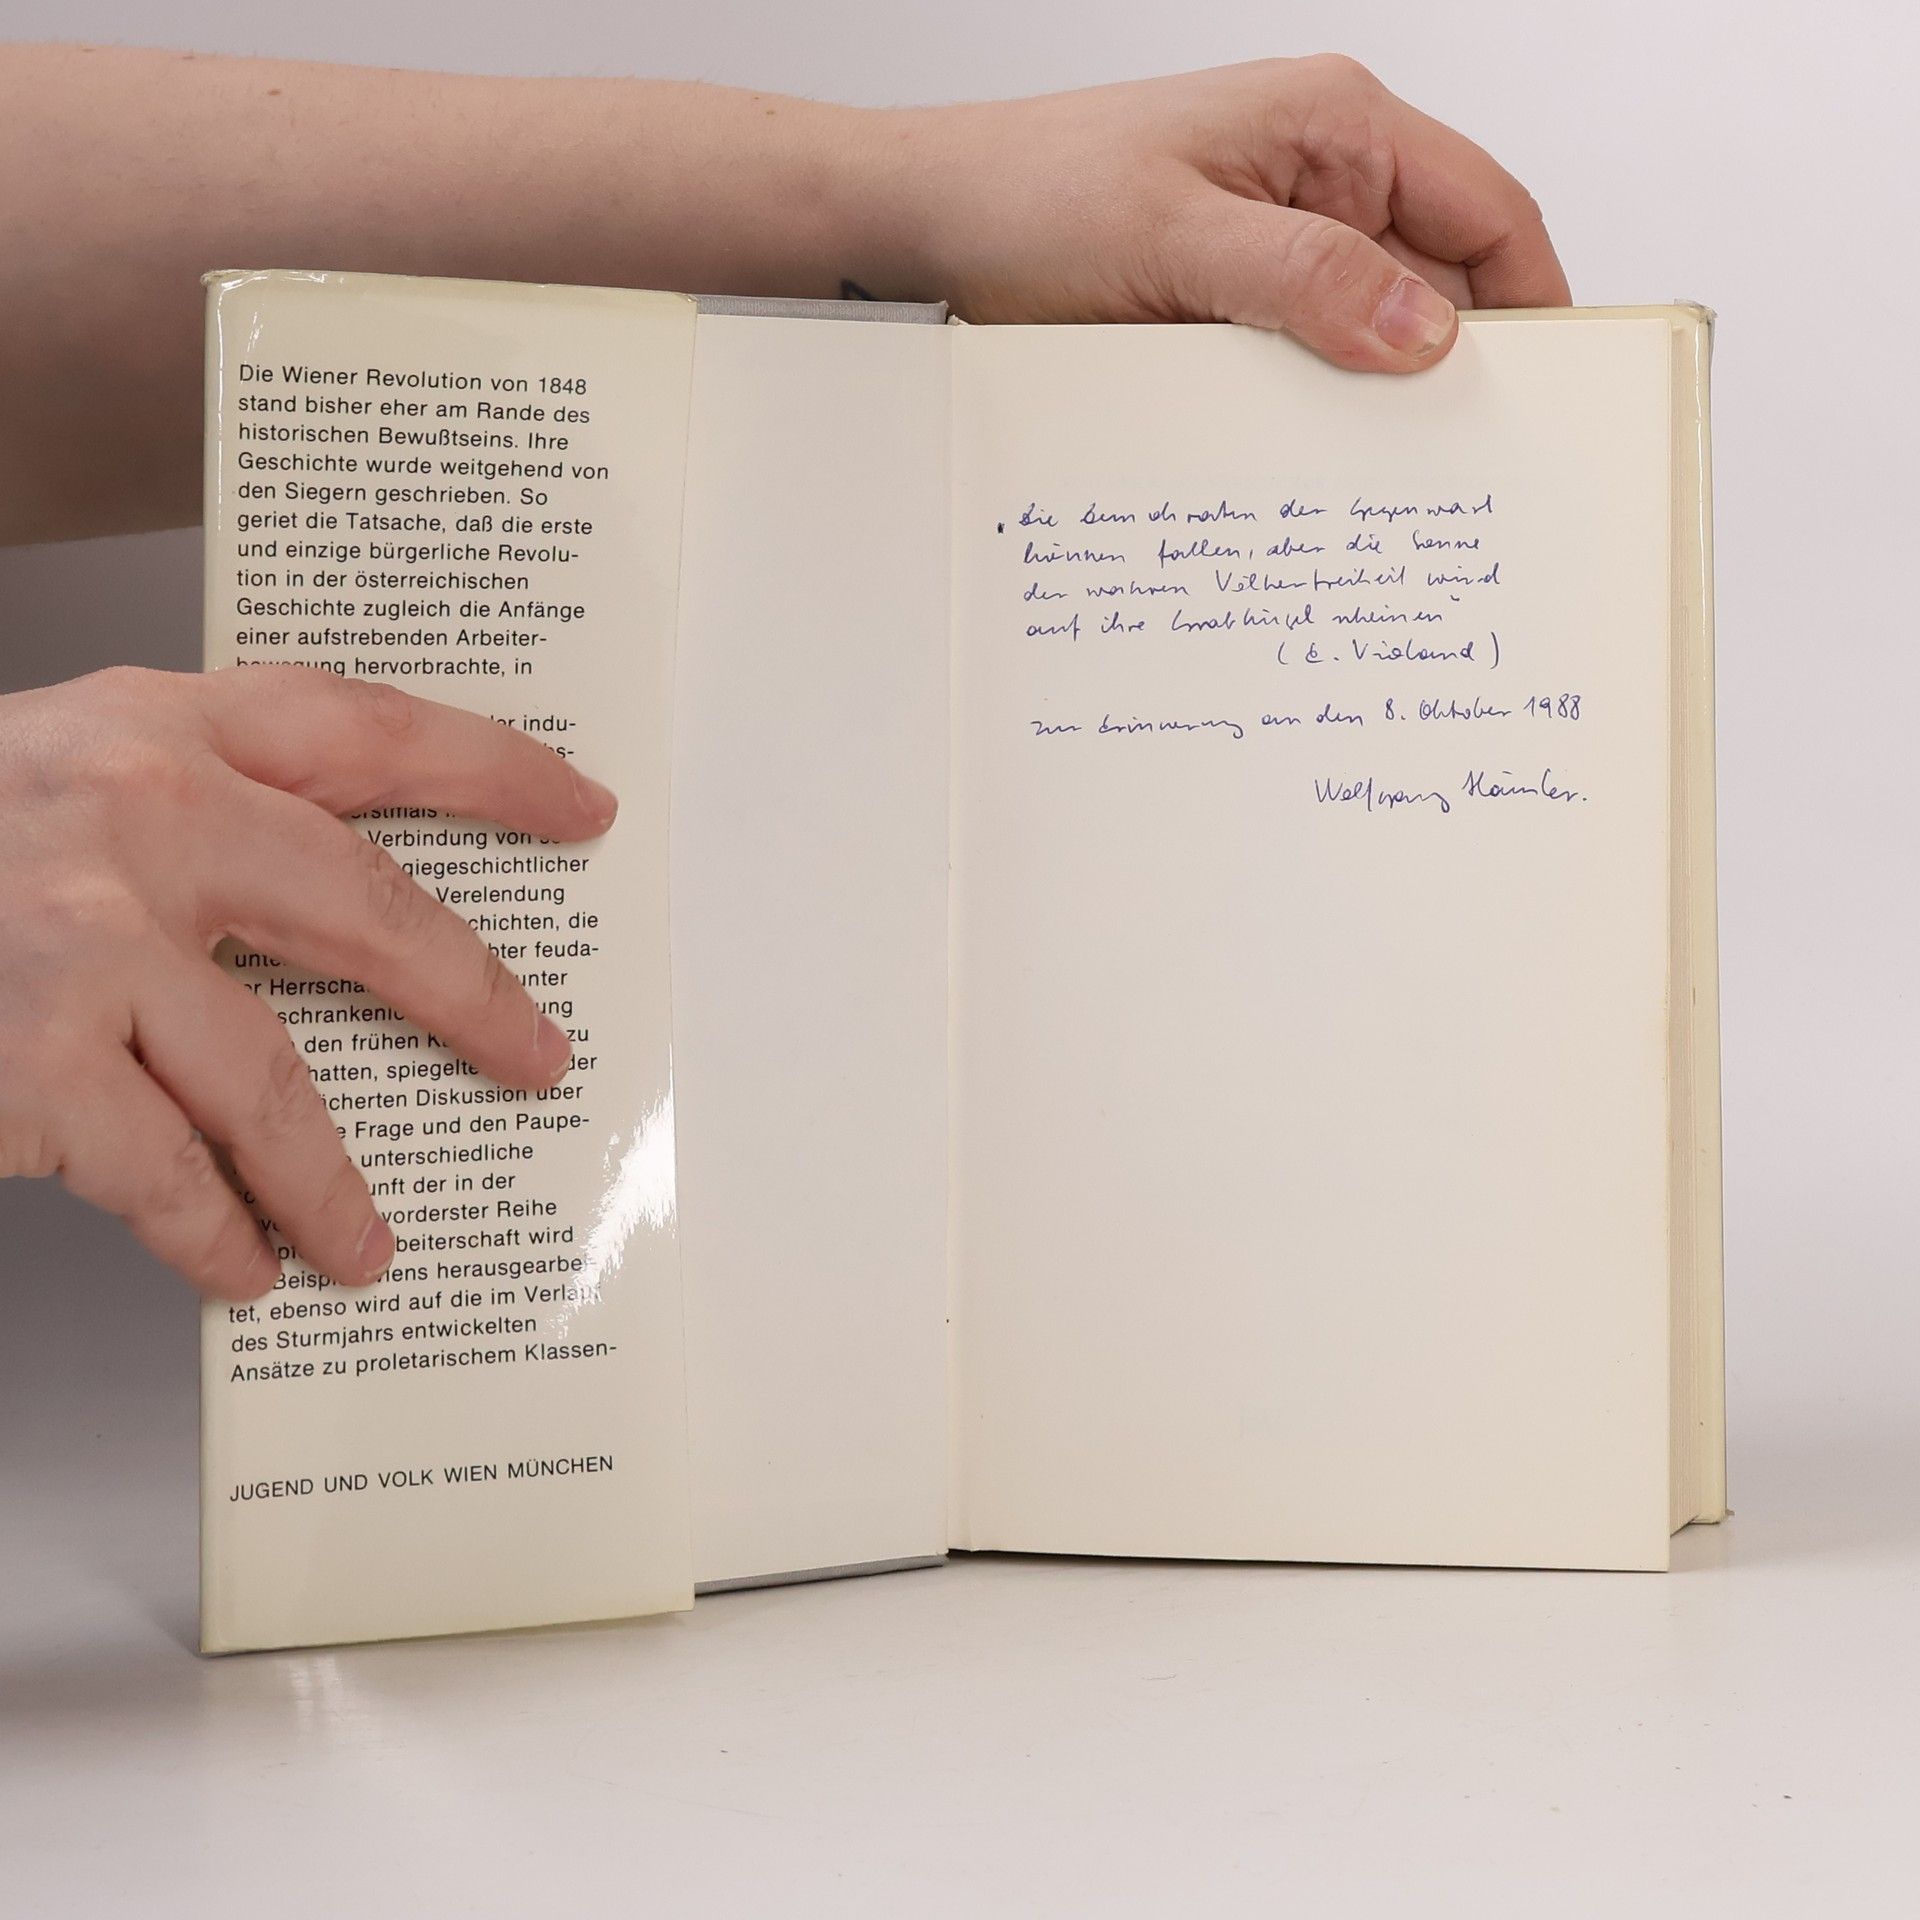 Die Wiener Revolution von 1848
stand bisher eher am Rande des
historischen Bewußtseins. Ihre
Geschichte wurde weitgehend von
den Siegern geschrieben. So
geriet die Tatsache, daß die erste
und einzige bürgerliche Revolu-
tion in der österreichischen
Geschichte zugleich die Anfänge
einer aufstrebenden Arbeiter-
bewegung hervorbrachte, in
indu-
Verbindung von
Verelendung
die
feuda-
unter
den frühen zu
hatten, der
Diskussion über
Frage und den Paupe-
unterschiedliche
der in der
vorderster Reihe
wird
herausgearbei-
tet, ebenso wird auf die im Verlauf
des Sturmjahrs entwickelten
Ansätze zu proletarischem Klassen-
JUGEND UND VOLK WIEN MÜNCHEN
Die Demokraten der Gegenwart
können fallen, aber die Sonne
der wahren Völkerfreiheit wird
auf ihre Grabhügel scheinen"
(E. Violand)
zur Erinnerung an den 8. Oktober 1988
Wolfgang Häusler.